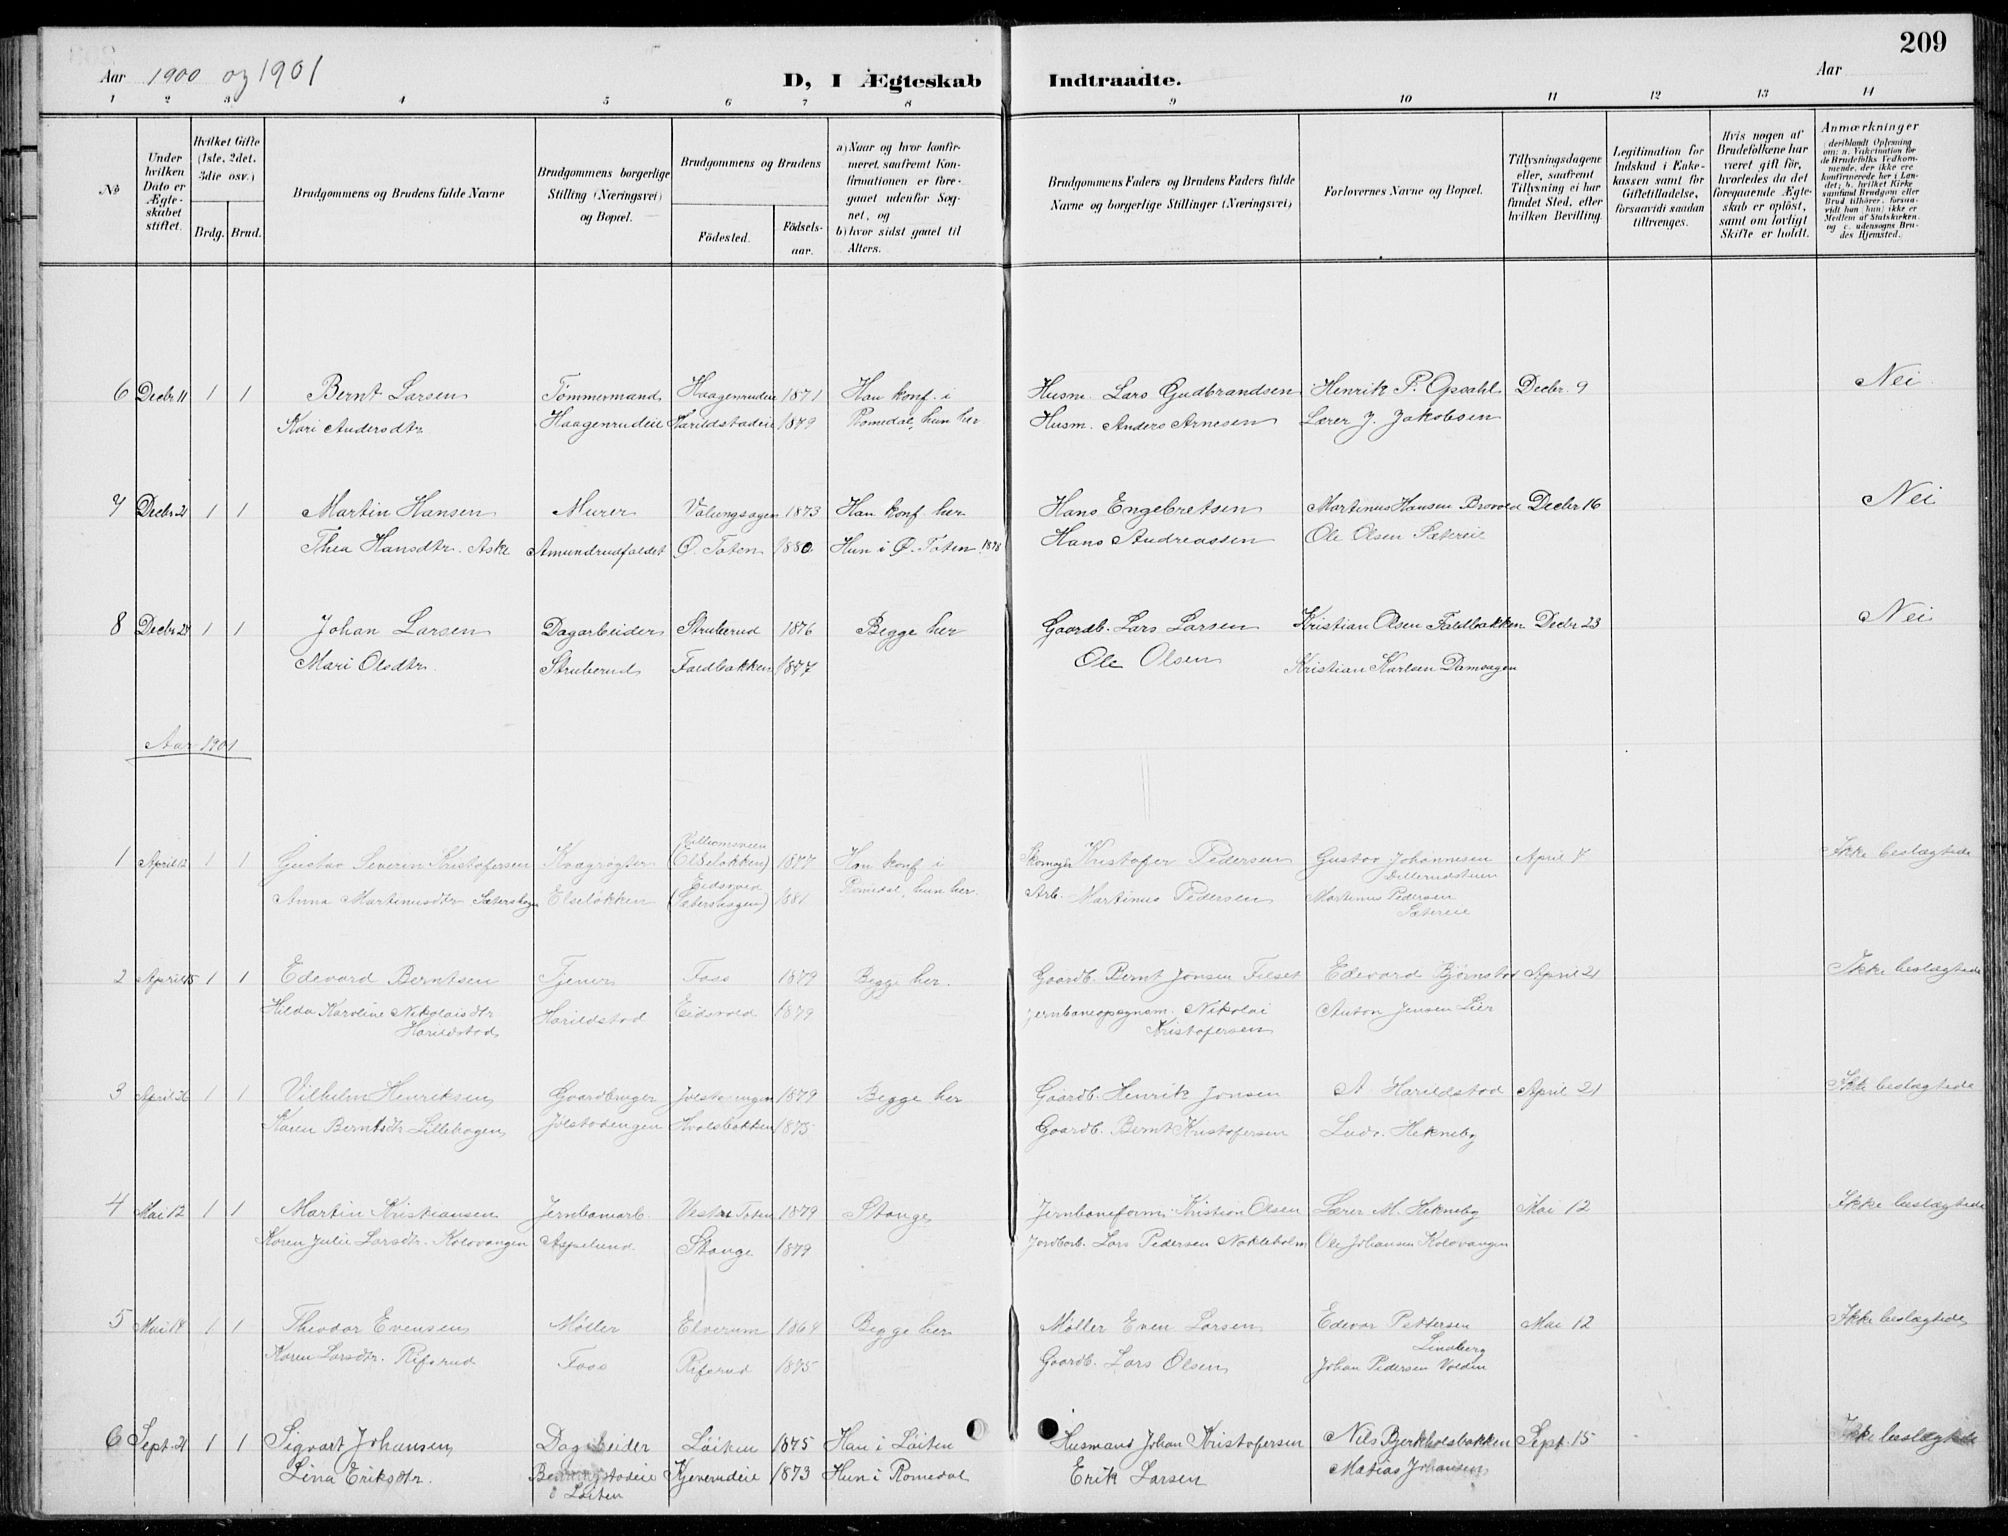 209
Aar 1900 og 1901
D, I Ægteskab Indtraadte.
Aar
1 2 3 4 5 6 7 8 9 10 11 12 13 14
No
Under hvilken Dato er Ægteskabet stiftet.
Hvilket Gifte (1ste, 2det, 3die osv.)
Brdg. Brud.
Brudgommens og Brudens fulde Navne
Brudgommens borgerlige Stilling (Næringsvei) og Bopæl.
Brudgommens og Brudens
Födested. Födselsaar.
a) Naar og hvor konfirmeret, saafremt Konfirmationen er foregaaet udenfor Sognet, og
b) hvor sidst gaaet til Alters.
Brudgommens Faders og Brudens Faders fulde Navne og borgerlige Stillinger (Næringsvei)
Forlovernes Navne og Bopæl.
Tillysningsdagene eller, saafremt Tillysning ei har fundet Sted, efter hvilken Bevilling.
Legitimation for Indskud i Enkekassen samt for Giftetilladelse, forsaavidt saadan tiltrænges.
Hvis nogen af Brudefolkene har været gift för, hvorledes da det foregaaende Ægteskab er oplöst, samt om lovligt Skifte er holdt.
Anmærkninger (deriblandt Oplysning om: a. Vakcination for de Brudefolks Vedkommende, der ikke ere konfirmerede her i Landet; b. hvilket Kirkesamfund Brudgom eller Brud tilhörer, forsaavidt han (hun) ikke er Medlem af Statskirken, og c. udensogns Brudes Hjemsted.
6 Decbr 11 1 1 Bernt Larsen Tømmermand Haagenrudeie 1871 Han konf. i Husm. Lars Gudbrandsen Henrik P. Opsahl Decbr. 9 Nei
Kari Andersdtr. Haagenrudeie Harildstadeie 1879 Romedal, hun her Husm. Anders Arnesen Lærer J. Jakobsen
7 Decbr 21 1 1 Martin Hansen Murer Valungsagen 1873 Han konf. her Hans Engebretsen Martinus Hansen Brovold Decbr 16 Nei
Thea Hansdtr. Aske Amundrudfaldet Ø. Toten 1880 Hun i Ø. Toten 1898 Hans Andreassen Ole Olsen Sætereie
8 Decbr 28 1 1 Johan Larsen Dagarbeider Struberud 1876 Begge her Gaardb. Lars Larsen Kristian Olsen Faldbakken Decbr 23 Nei
Mari Olsdtr. Struberud Faldbakken 1877 Ole Olsen Kristian Karlsen Damsagen
Aar 1901
1 April 12 1 1 Gustav Severin Kristofersen Kvægrøgter (Elseløkken) 1877 Han konf i Skomager Kristofer Pedersen Gustav Johannesen April 7 Ikke beslægtede
Dillerudstuen
Eidsvold
Anna Martinusdtr Sætershagen Elseløkken (Sætershagen) 1881 Romedal, hun her. Arb. Martinus Pedersen Martinus Pedersen
Sætereie
2 April 15 1 1 Edevard Berntsen Tjener Foss 1879 Begge her. Gaardb. Bernt Jonsen Filset Edevard Bjørnstad April 21 Ikke beslægtede
Hilda Karoline Nikolaisdtr Harildstad Eidsvold 1879 Jernbaneopsynsm. Nikolai Anton Jensen Lier
Harildstad Kristofersen
3 April 26 1 1 Vilhelm Henriksen Gaardbruger Jølstadengen 1879 Begge her Gaardb. Henrik Jonsen A. Harildstad April 21 Ikke beslægtede
Karen Berntsdtr Lillehagen Jølstadengen Hvolsbakken 1875 Gaardb. Bernt Kristofersen Ludv. Hekneby
4 Mai 12 1 1 Martin Kristiansen Jernbanearb. Vestre Toten 1879 Stange Jernbaneform. Kristian Olsen Lærer M. Hekneby Mai 12 Ikke beslægtede
Karen Julie Larsdtr. Kolovangen Aspelund Stange 1879 Jordarb. Lars Pedersen Nakleholm Ole Johansen Kolovangen
5 Mai 14 1 1 Theodor Evensen Møller Elverum 1864 Begge her Møller Even Larsen Edevar Pettersen Mai 12 Ikke beslægtede
Lindberg
Karen Larsdtr. Rifsrud Foss Rifsrud 1875 Gaardb. Lars Olsen Johan Pedersen Volden
6 Sept. 21 1 1 Sigvart Johansen Dagarbeider Løiten 1875 Han i Løiten Husmand Johan Kristofersen Nils Bjerkholsbakken Sept. 15 Ikke beslægtede
Lina Eriksdtr. Kjeverudeie 1873 Hun i Romedal Erik Larsen Matias Johansen
i Løiten